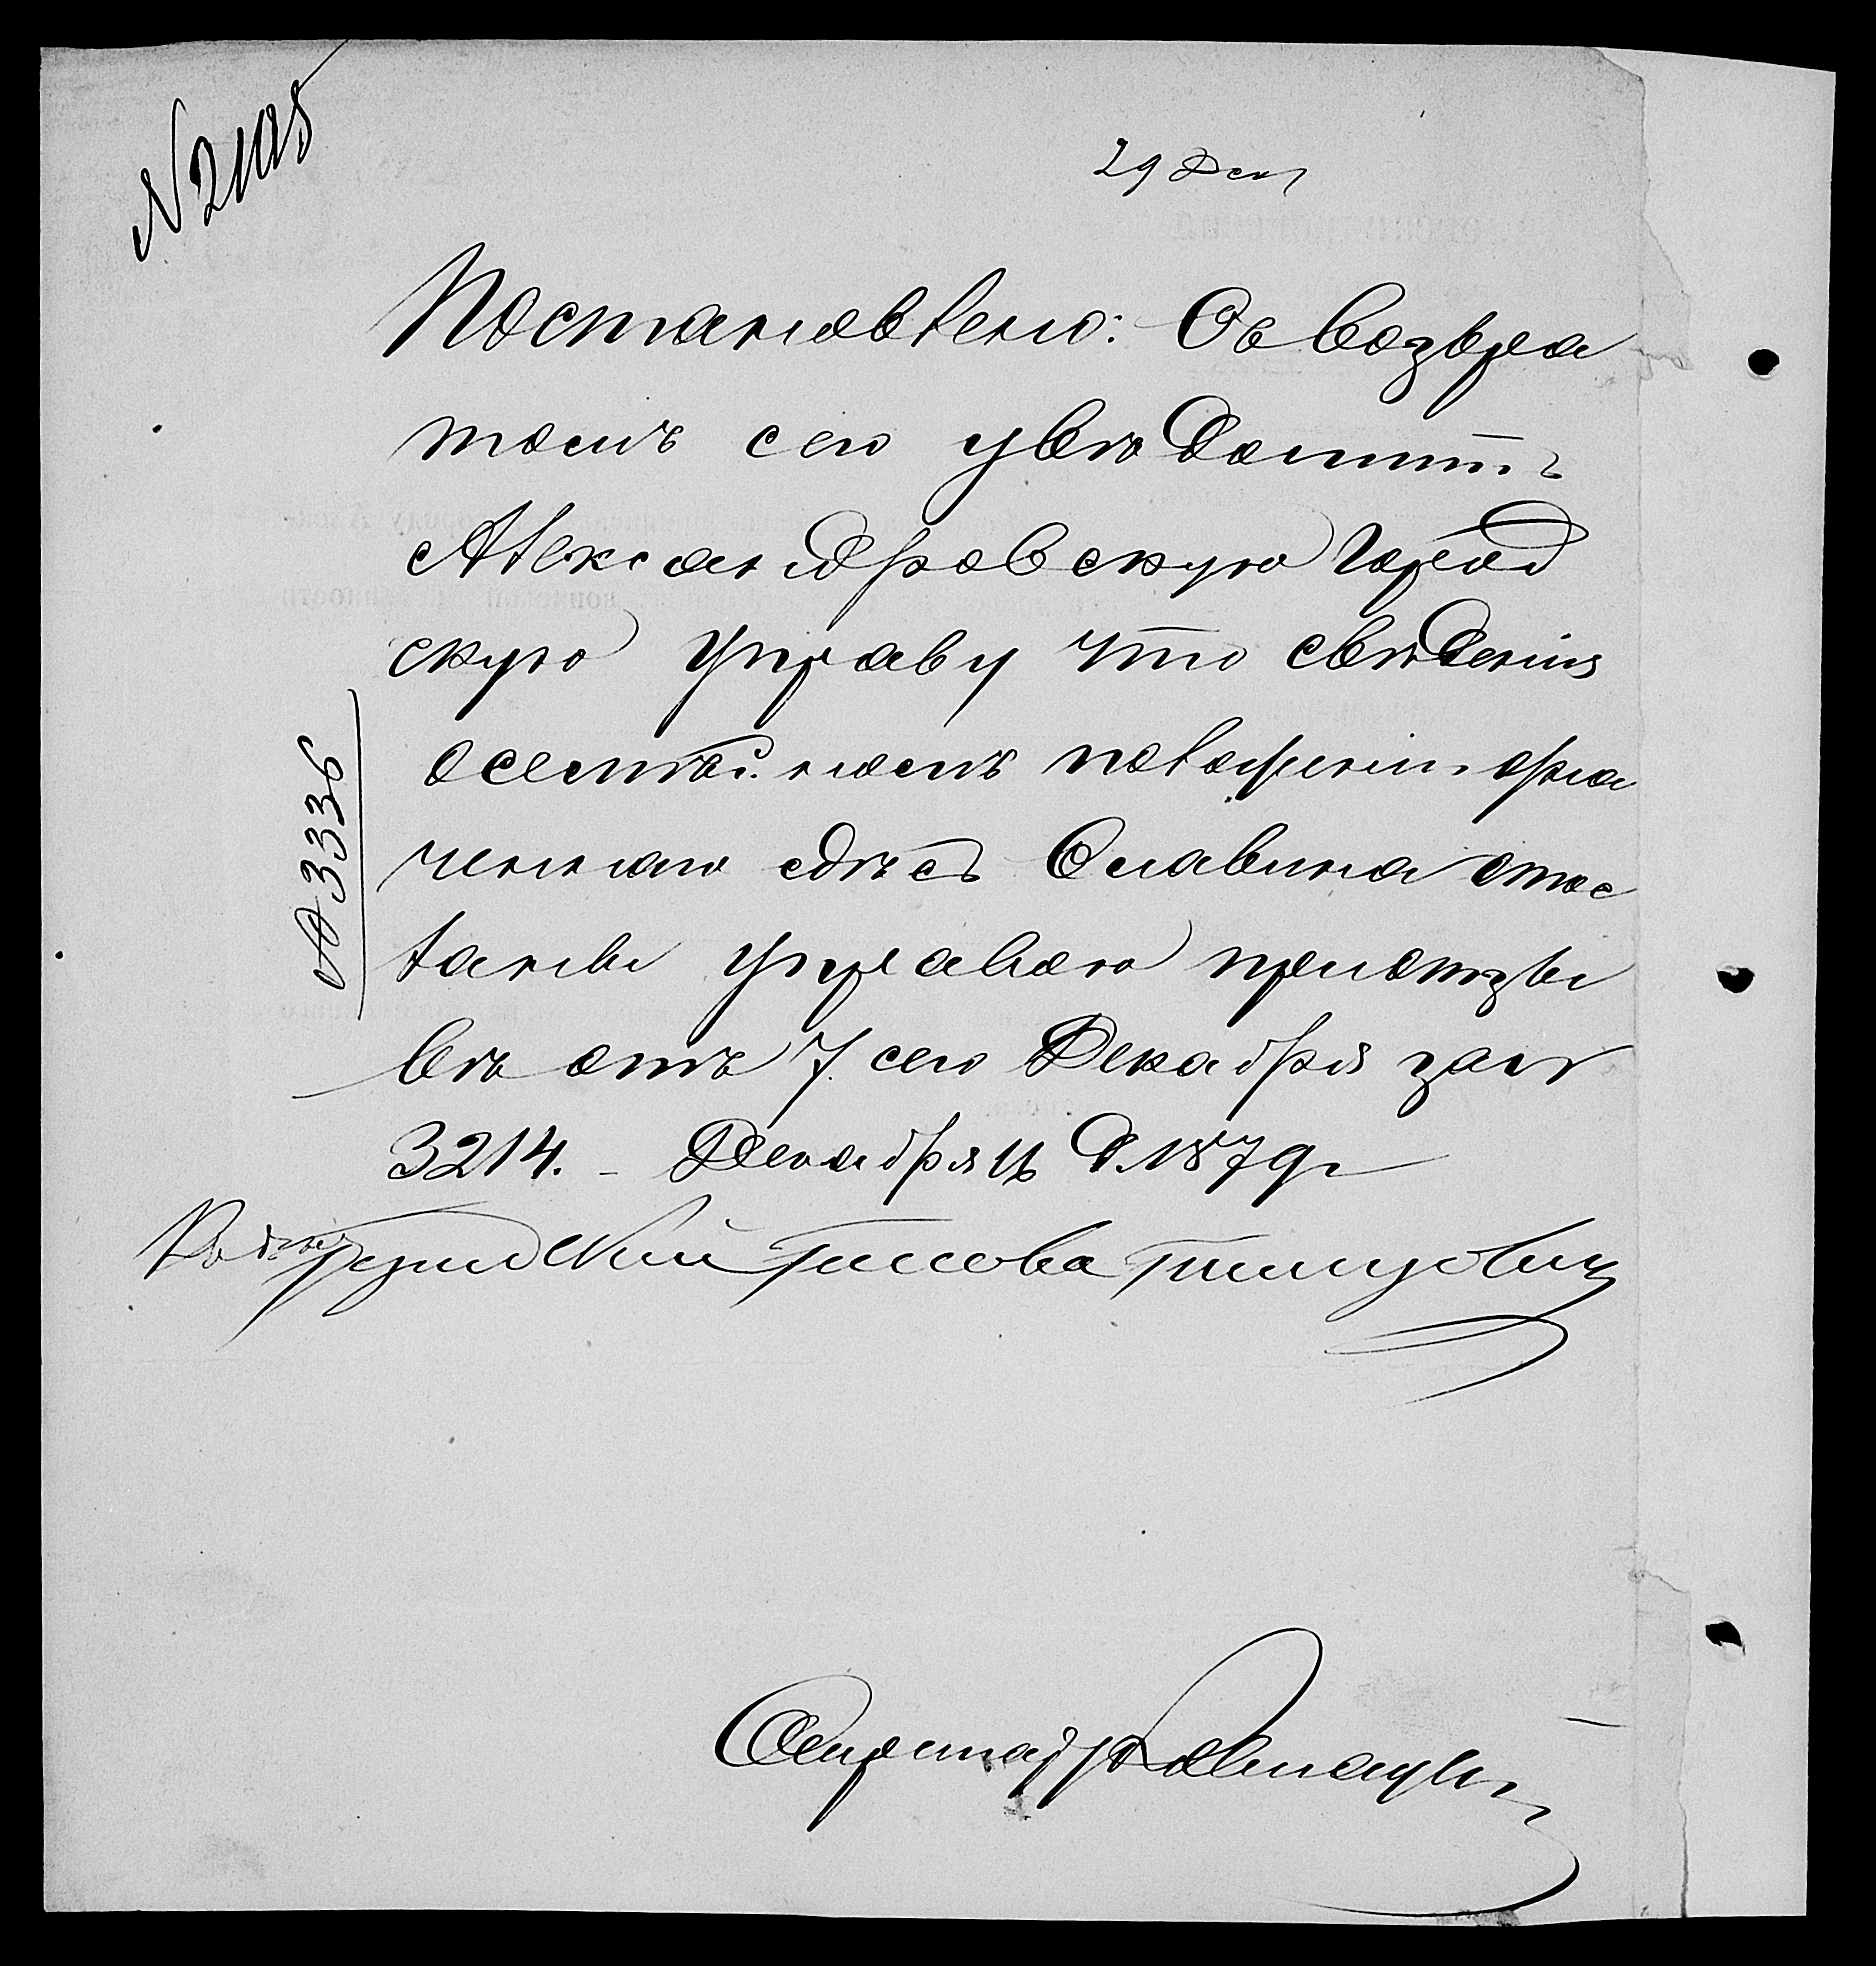 N 2105
29 Дек
Постановлено: Съ возвра
томъ сего увѣдомить
Александровскую Город
скую Управу что свѣденія
о семейномъ положеніи зна
ченнаго здѣсь Славина
Управою при отзы
вѣ отъ 7. сего Декабря за №
3214. - Декабря 16 д. 1879 г
№ 3336
Секретарь